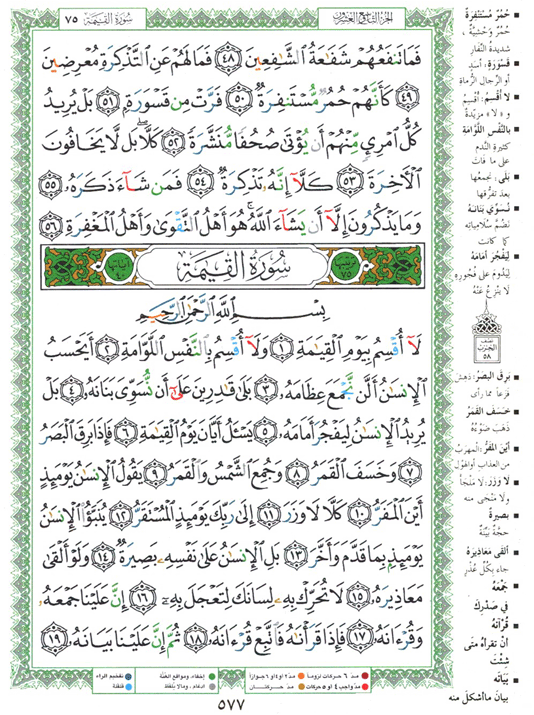 الجزء التاسع والعشرون
سُورَةُ القِيَامَةِ ٧٥
فَمَا تَنفَعُهُمْ شَفَٰعَةُ ٱلشَّٰفِعِينَ ٤٨ فَمَا لَهُمْ عَنِ ٱلتَّذْكِرَةِ مُعْرِضِينَ
٤٩ كَأَنَّهُمْ حُمُرٌ مُّسْتَنفِرَةٌ ٥٠ فَرَّتْ مِن قَسْوَرَةٍ ٥١ بَلْ يُرِيدُ
كُلُّ ٱمْرِئٍ مِّنْهُمْ أَن يُؤْتَىٰ صُحُفًا مُّنَشَّرَةً ٥٢ كَلَّا ۖ بَل لَّا يَخَافُونَ
ٱلْأٓخِرَةَ ٥٣ كَلَّآ إِنَّهُۥ تَذْكِرَةٌ ٥٤ فَمَن شَآءَ ذَكَرَهُۥ ٥٥
وَمَا يَذْكُرُونَ إِلَّآ أَن يَشَآءَ ٱللَّهُ ۚ هُوَ أَهْلُ ٱلتَّقْوَىٰ وَأَهْلُ ٱلْمَغْفِرَةِ ٥٦
سُورَةُ القِيَٰمَةِ
بِسْمِ ٱللَّهِ ٱلرَّحْمَٰنِ ٱلرَّحِيمِ
لَآ أُقْسِمُ بِيَوْمِ ٱلْقِيَٰمَةِ ١ وَلَآ أُقْسِمُ بِٱلنَّفْسِ ٱللَّوَّامَةِ ٢ أَيَحْسَبُ
ٱلْإِنسَٰنُ أَلَّن نَّجْمَعَ عِظَامَهُۥ ٣ بَلَىٰ قَٰدِرِينَ عَلَىٰٓ أَن نُّسَوِّىَ بَنَانَهُۥ ٤ بَلْ
يُرِيدُ ٱلْإِنسَٰنُ لِيَفْجُرَ أَمَامَهُۥ ٥ يَسْـَٔلُ أَيَّانَ يَوْمُ ٱلْقِيَٰمَةِ ٦ فَإِذَا بَرِقَ ٱلْبَصَرُ
٧ وَخَسَفَ ٱلْقَمَرُ ٨ وَجُمِعَ ٱلشَّمْسُ وَٱلْقَمَرُ ٩ يَقُولُ ٱلْإِنسَٰنُ يَوْمَئِذٍ
أَيْنَ ٱلْمَفَرُّ ١٠ كَلَّا لَا وَزَرَ ١١ إِلَىٰ رَبِّكَ يَوْمَئِذٍ ٱلْمُسْتَقَرُّ ١٢ يُنَبَّؤُا۟ ٱلْإِنسَٰنُ
يَوْمَئِذٍۭ بِمَا قَدَّمَ وَأَخَّرَ ١٣ بَلِ ٱلْإِنسَٰنُ عَلَىٰ نَفْسِهِۦ بَصِيرَةٌ ١٤ وَلَوْ أَلْقَىٰ
مَعَاذِيرَهُۥ ١٥ لَا تُحَرِّكْ بِهِۦ لِسَانَكَ لِتَعْجَلَ بِهِۦٓ ١٦ إِنَّ عَلَيْنَا جَمْعَهُۥ
وَقُرْءَانَهُۥ ١٧ فَإِذَا قَرَأْنَٰهُ فَٱتَّبِعْ قُرْءَانَهُۥ ١٨ ثُمَّ إِنَّ عَلَيْنَا بَيَانَهُۥ ١٩
حُمُرٌ مُسْتَنْفِرَةٌ
حُمُرٌ وَحْشِيَّةٌ ،
شديدةُ النِّفار
قَسْوَرَةٍ: أسَدٍ
أو الرِّجالِ الرُّماةِ
لا أُقْسِمُ: أُقْسِمُ
و « لا » مزيدةٌ
بالنَّفْسِ اللَّوَّامَةِ
كثيرةِ النَّدمِ
على ما فاتَ
بَلَى: نَجمعُها
بعد تفرُّقِها
نُسَوِّيَ بَنَانَهُ
نَضُمَّ سُلامِيَاتِهِ
كما كانت
لِيَفْجُرَ أَمَامَهُ
لِيَدُومَ على فُجورِه
لا يَنْزِعُ عَنْهُ
نصف
الحزب
٥٨
بَرِقَ البَصَرُ: دَهِشَ
فَزَعًا مما رأى
خَسَفَ القَمَرُ
ذَهَبَ ضَوْءُهُ
أَيْنَ المَفَرُّ: المَهْرَبُ
من العذابِ أو الهَوْلِ
لا وَزَرَ: لا مَلْجَأَ
ولا مَنْجَى منه
بَصِيرَةٌ
حُجَّةٌ بَيِّنَةٌ
أَلْقَى مَعَاذِيرَهُ
جاء بكُلِّ عُذْرٍ
جَمْعَهُ
في صَدْرِكَ
قُرْآنَهُ
أن تقرأهُ متى
شِئْتَ
بَيَانَهُ
بيانَ ما أشكلَ منه
مدّ ٦ حركات لزوماً
مدّ ٢ أو ٤ أو ٦ جوازاً
إخفاء، ومواقع الغُنَّة
تفخيم الراء
مدّ واجب ٤ أو ٥ حركات
مدّ حركتان
ادغام، وما لا يُلفظ
قلقلة
٥٧٧